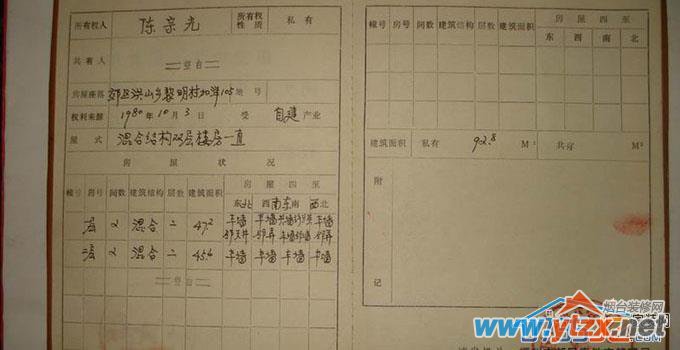 所有权人 陈亲光 所有权性质 私有
共有人 空白
房屋座落 郊区洪山乡黎明村加洋105 地号
权利来源 1980年10月3日 受 自建 产业
屋式 混合结构双层楼房一直
房屋状况
幢号 房号 间数 建筑结构 层数 建筑面积 房屋四至
东北 西南 东南 西北
一层 2 混合 二 47.2 牛墙 牛墙 牛墙
二层 2 混合 二 45.6 牛墙 牛墙 牛墙 牛墙
空白
幢号 房号 间数 建筑结构 层数 建筑面积 房屋四至
东 西 南 北
建筑面积 私有 92.8 M² 共有 M²
附
记
烟台装修网
www.ytzx.net